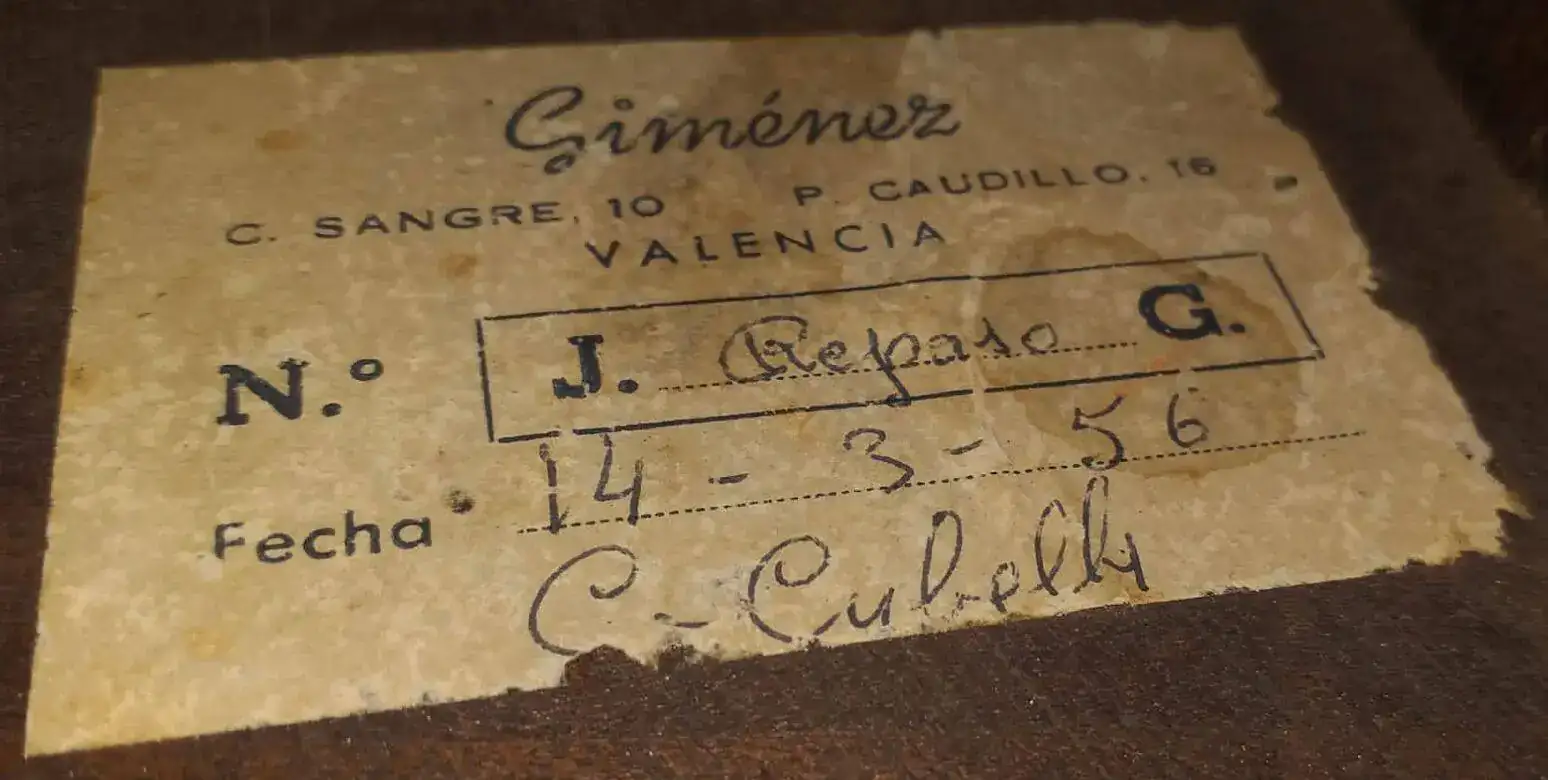 Giménez
C. SANGRE, 10 P. CAUDILLO, 16
VALENCIA
N.º J. Repaso G.
Fecha 14 - 3 - 56
C - Cubells